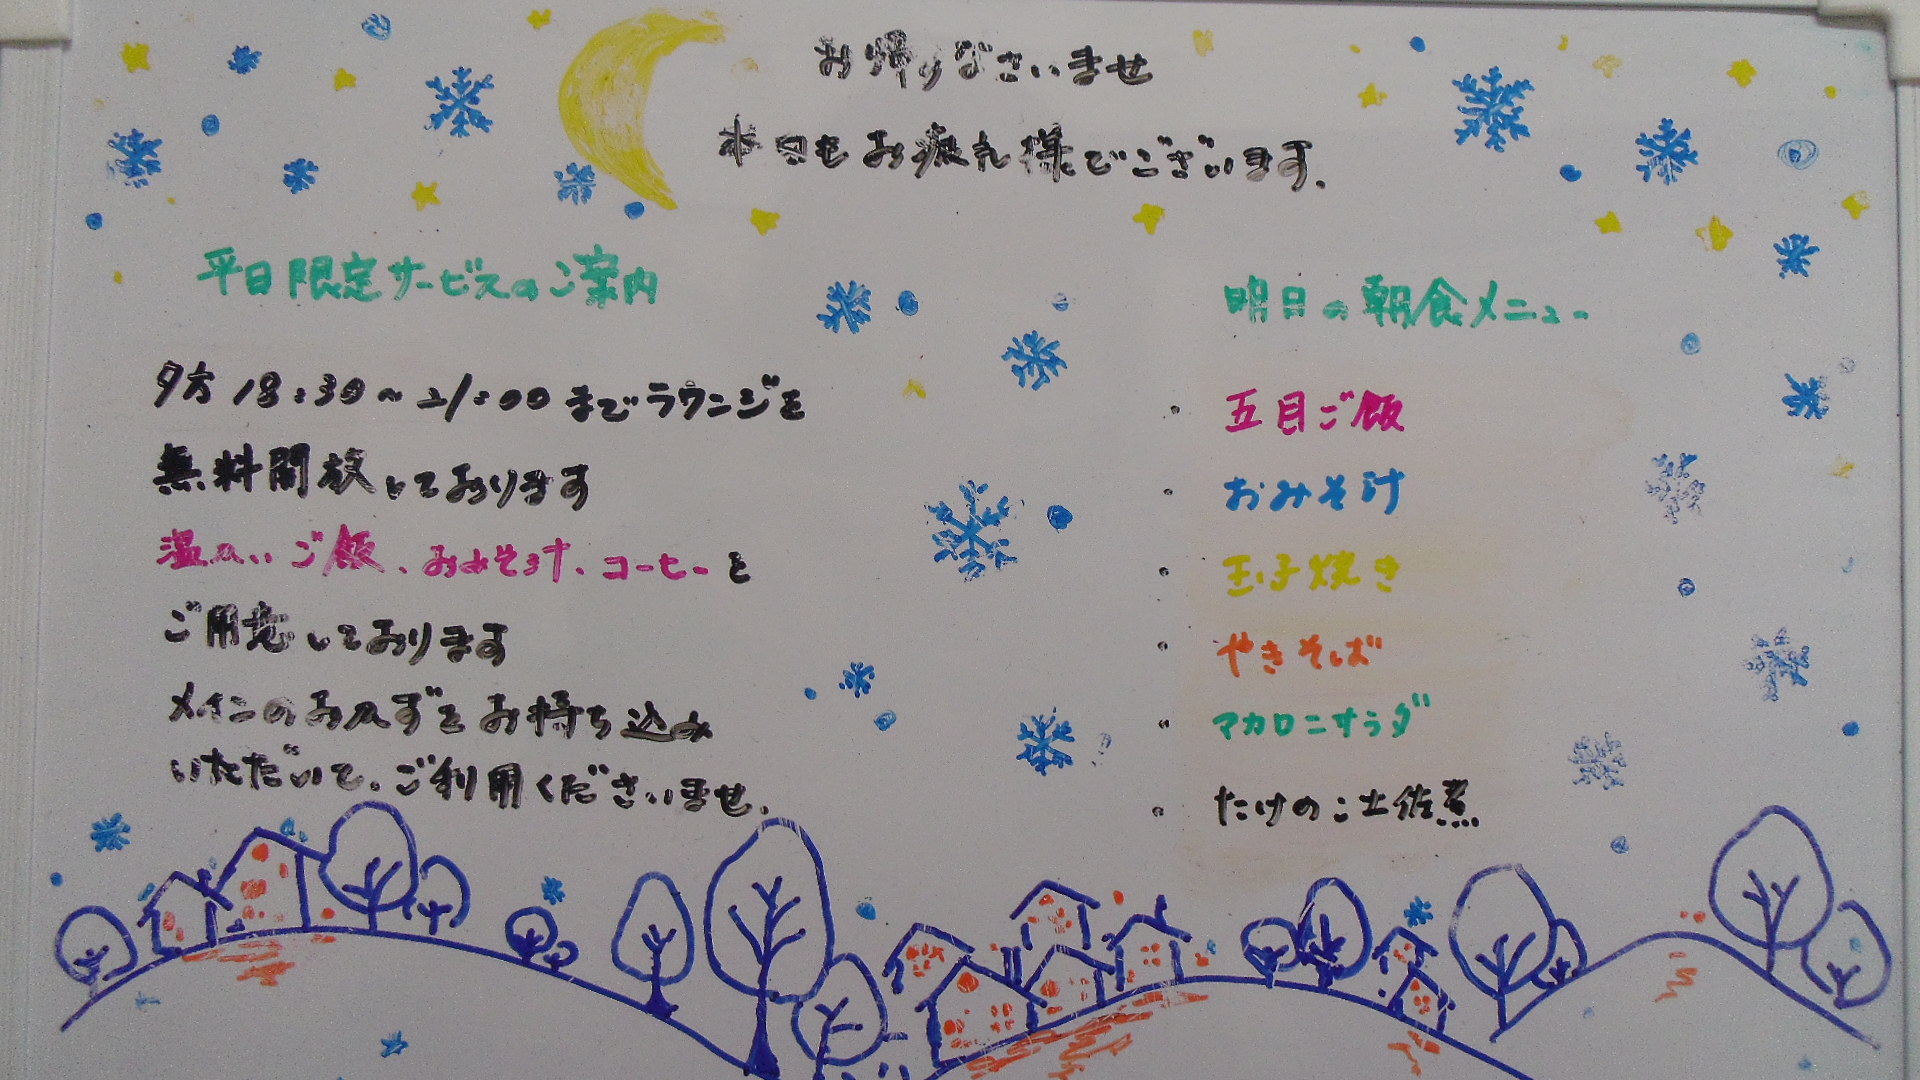 お帰りなさいませ
本日もお疲れ様でございます.
平日限定サービスのご案内
夕方 18:30～21:00までラウンジを
無料開放しております
温かいご飯、おみそ汁、コーヒーを
ご用意しております
メインのおかずをお持ち込み
いただいて、ご利用くださいませ.
明日の朝食メニュー
・五目ご飯
・おみそ汁
・玉子焼き
・やきそば
・マカロニサラダ
・たけのこ土佐煮